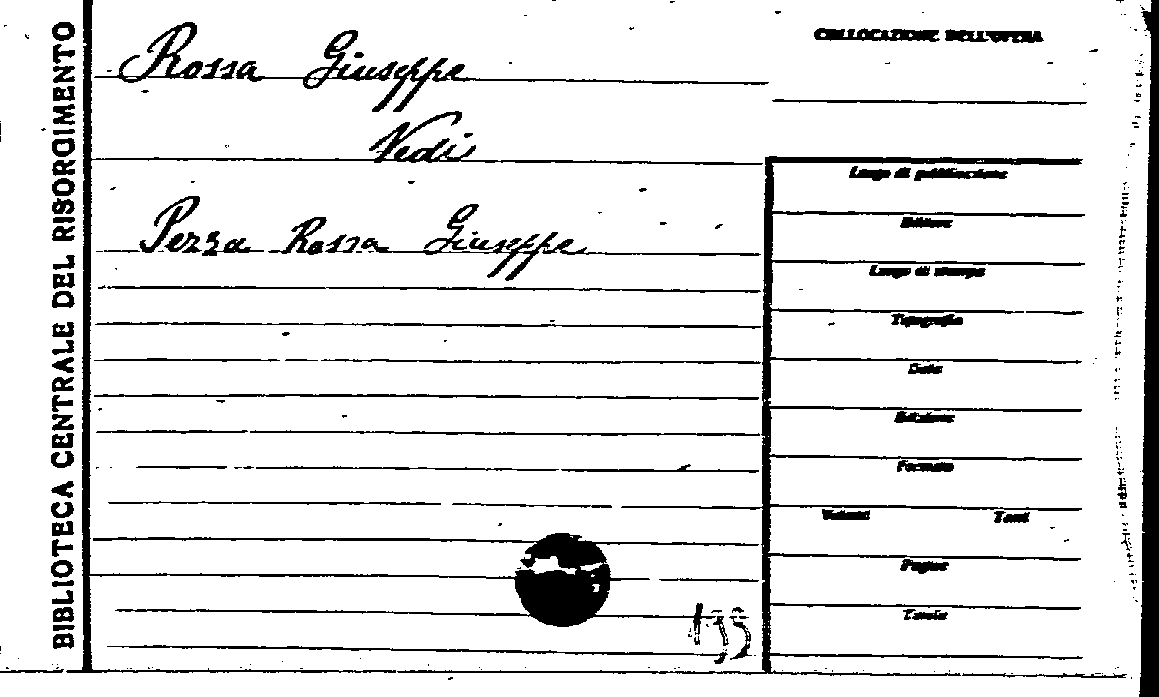 BIBLIOTECA CENTRALE DEL RISORGIMENTO
Rossa Giuseppe
Vedi
Pezza Rossa Giuseppe
COLLOCAZIONE DELL'OPERA
Luogo di pubblicazione
Editore
Luogo di stampa
Tipografia
Data
Edizione
Formato
Volumi Tomi
Pagine
Tavole